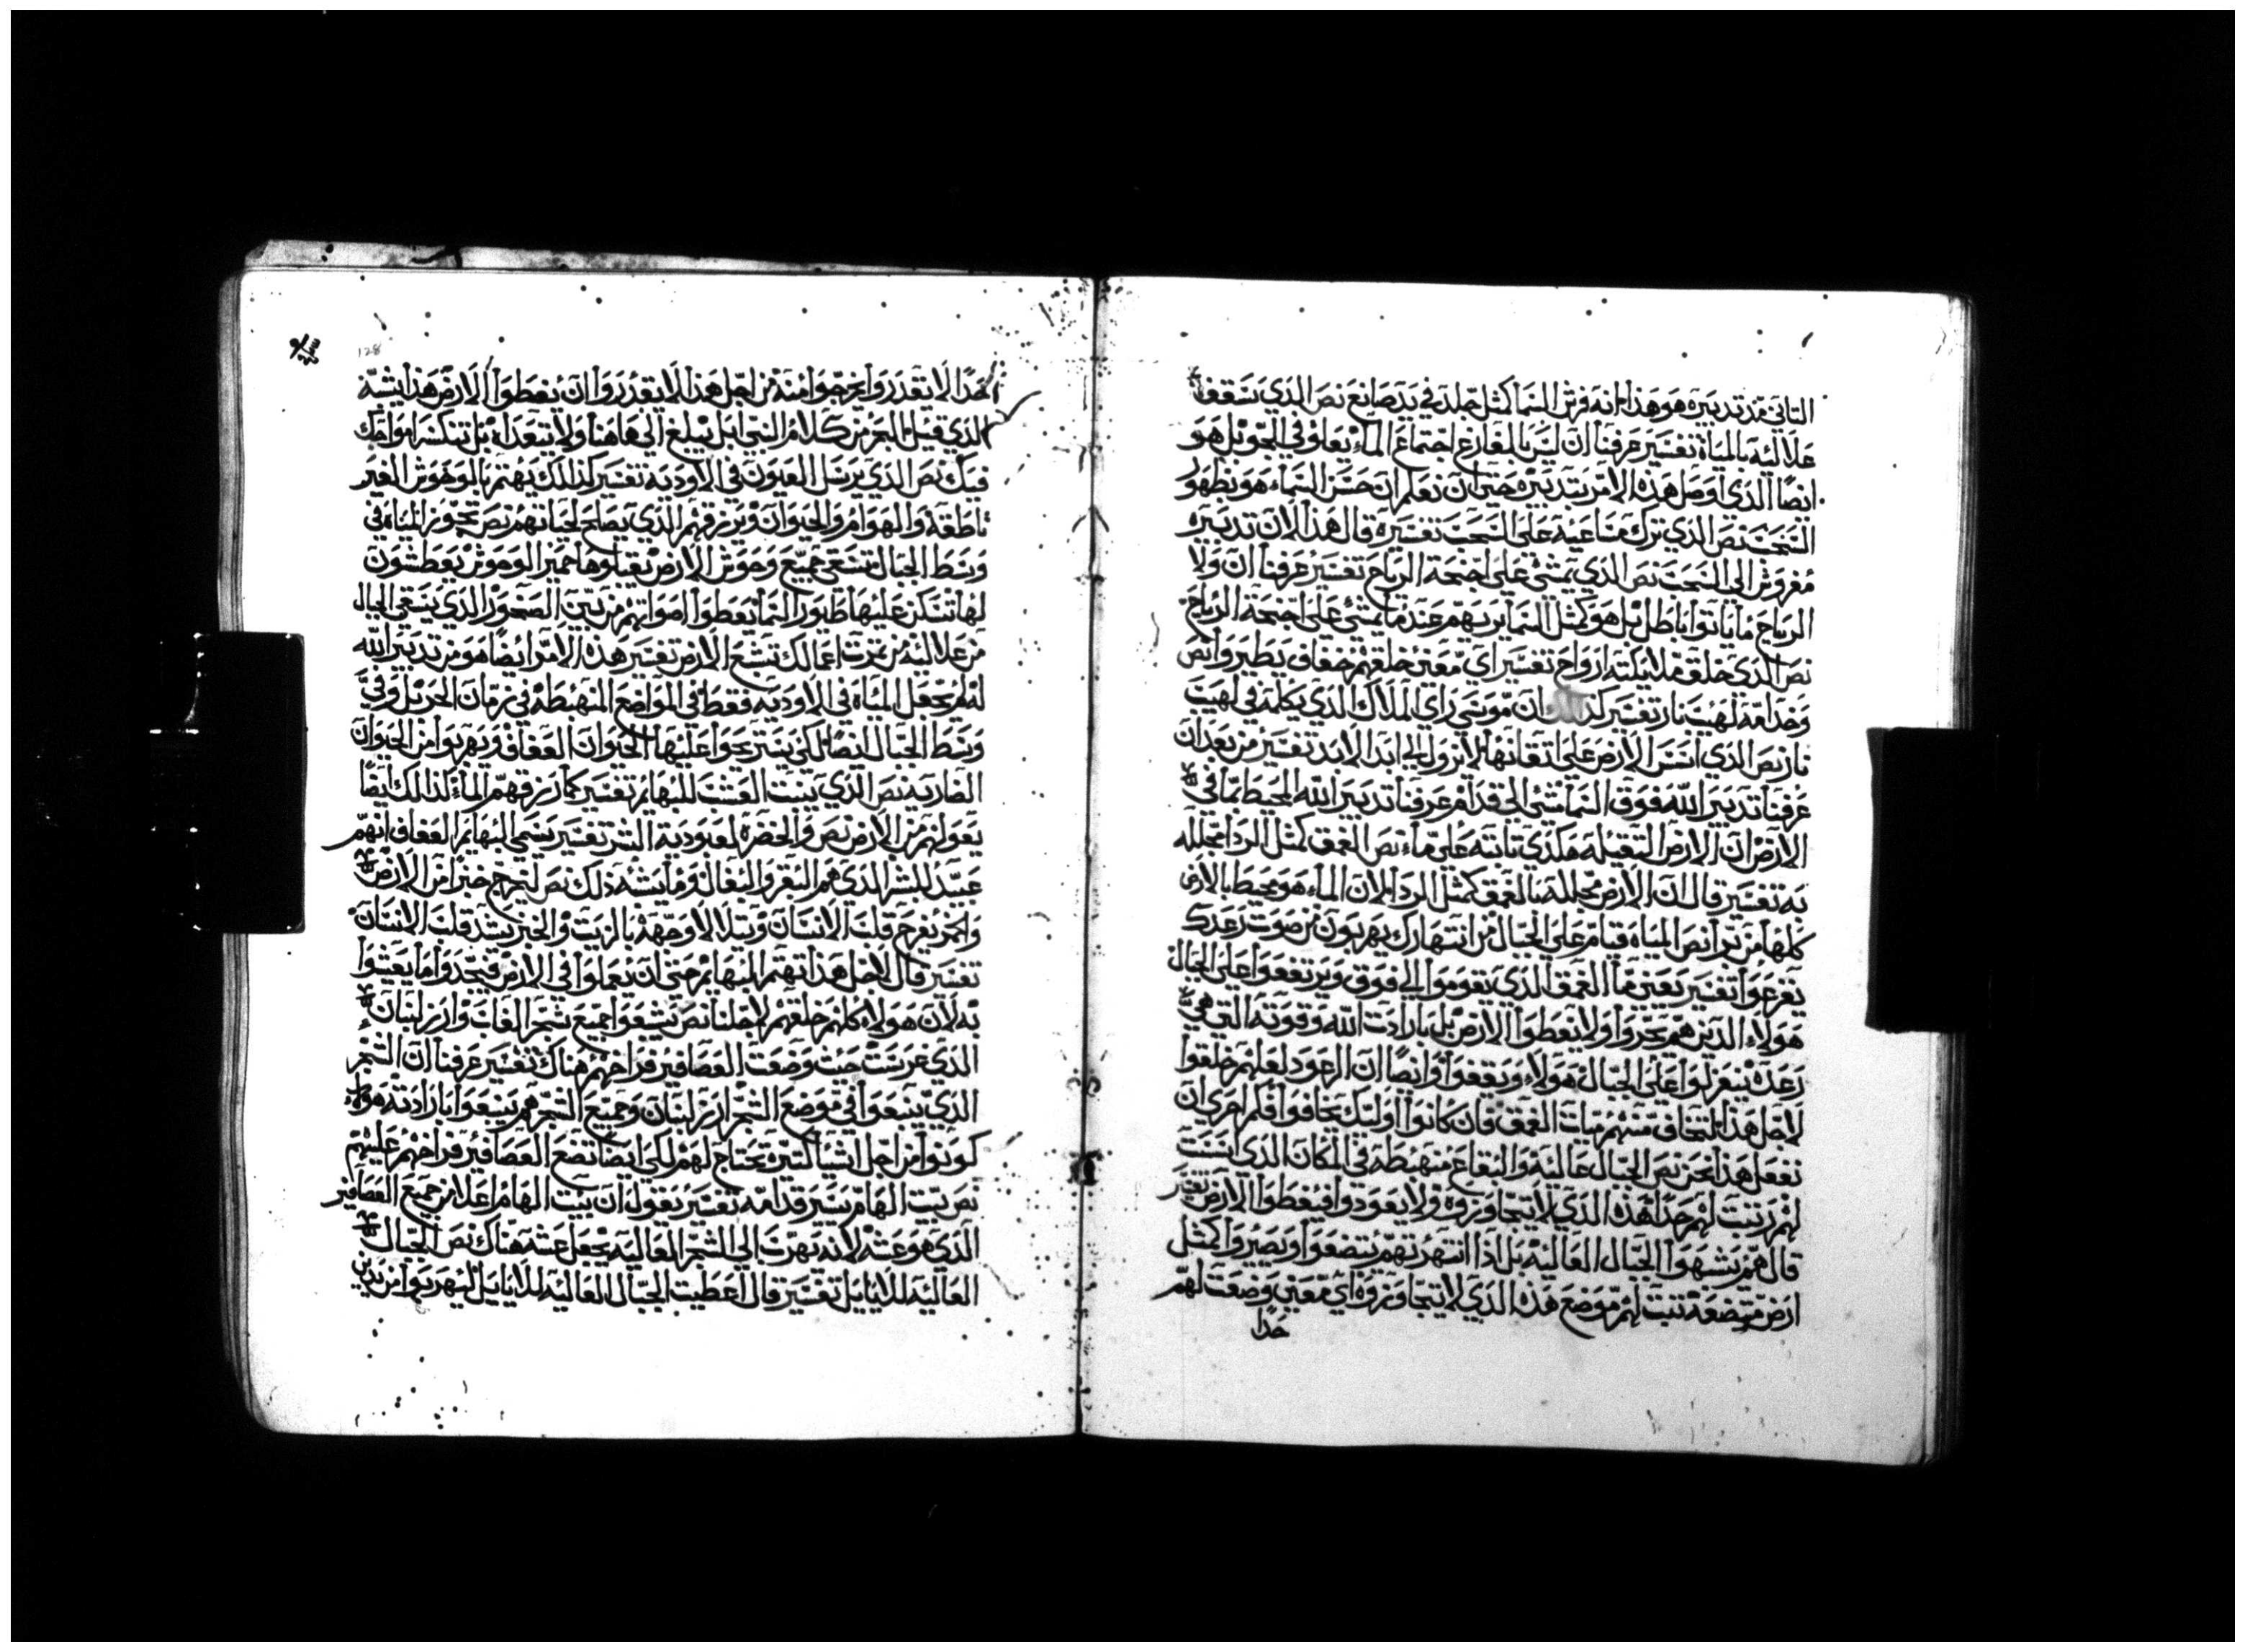 التاني قد تدبيره هو هذا انه فرش السما كمثل جلد في يد صانع نص الذي سقف
علاليه بالمياة تفسير عرفنا ان ليس بالفارغ اجتماع الماء يعلو في الجو بل هو
ايضا الذي اوصل هذه الامر بتدبيره حتى ان نعلم ان حسن السماء هو بظهور
السحب نص الذي ترك مساعيه على السحب تفسيره قال هذا لان تدبيره
مفروش الى السحب نص الذي يمشي على اجنحة الرياح تفسير عرفنا ان ولا
الرياح ما ياتوا باطل بل هو كمثل السما يربهم عند ما يمشي على اجنحة الرياح
نص الذي خلق ملايكته ارواح تفسير اي معني خلقهم خفاف يطيروا نص
وخدامه لهيب نار تفسير ان موسى راي الملاك الذي يكلمه في لهيب
نار نص الذي اسس الارض على اتقانها لا تزول الى ابد الابد تفسير من بعد ان
عرفنا تدبير الله فوق السما مشى الى قدام عرفنا تدبير الله المحيط بما في
الارض ان الارض التقيله هكذي تابته على ماء نص العمق كمثل الردا مجلله
به تفسير قال ان الارض مجلله بالعمق كمثل الردا لان الماء هو محيط بالارض
كلها من برا نص المياة قيام على الجبال من انتهارك يهربون من صوت رعدك
يفزعوا تفسير يعني ما العمق الذي يقوموا الى فوق ويرتفعوا على الجبال
هولاء الذين هم يجروا ولا يغطوا الارض بل بارادت الله وقوته التي هي
رعده ينعزلوا على الجبال هولاء ويقفوا وايضا ان الرعود لعلهم خلقوا
لاجل هذا لتخاف منهم ميات العمق فان كانوا اوليك يخافوا فلم احري ان
نفعل هذا نحن نص الجبال عاليه والبقاع منهبطه في المكان الذي اسست
لهم رتبت لهم حدا هذه الذي لا يتجاوزوه ولا يعودوا فيغطوا الارض تفسير
قال هم يشبهوا الجبال العاليه بل اذا انتهرتهم يتضعوا ويصيروا كمثل
ارض متضعه تبت لهم موضع هذه الذي لا يتجاوزوه اي معني وضعت لهم
حدا
128
حدا لا يقدروا يخرجوا منه من اجل هذا لا يقدروا ان يغطوا الارض هذا يشبه
الذي قيل للبحر من كلام النبي ابل يبلغ الي هاهنا ولا يتعداه بل تنكسر امواجك
فيك نص الذي يرسل العيون في الاوديه تفسير كذلك يهتم بالوحوش الغير
ناطقه والهوام والحيوان ويرزقهم الذي يصلح لحياتهم نص تجوز المياة في
وسط الجبال تسقى جميع وحوش الارض يقبلوها حمير الوحوش يعطشون
لها تسكن عليها طيور السما يعطوا اصواتهم من بين الصخور الذي يسقي الجبال
من علاليه من تمرت اعمالك تشبع الارض تفسير هذه الامر ايضا هو من تدبير الله
له لم يجعل المياة في الاوديه فقط في المواضع المنهبطه في زمان الحر بل وفي
وسط الجبال ايضا لكي يستريحوا عليها الحيوان العفاف ويهربوا من الحيوان
الضاريه نص الذي ينبت العشب للبهايم تفسير كما رزقهم الماء كذلك ايضا
يعولهم من الارض نص والخضرة لعبودية البشر تفسير يسمي البهايم العفاف انهم
عبيد للبشر الذي هم البقر والبغال وما يشبه ذلك نص ليخرج خبزا من الارض
وخمر يفرح قلب الانسان ويتلالا وجهه بالزيت والخبز يشد قلب الانسان
تفسير قال لاجل هذا تهتم البهايم حتى ان يعملوا في الارض فيجدوا ما يعيشوا
به لان هولاء كلهم خلقهم لاجلنا نص يشبعوا جميع شجر الغاب وارز لبنان
الذي غرست حيث وضعت العصافير فراخهم هناك تفسير عرفنا ان الشجر
الذي يشبعوا في موضع الشجر ارز لبنان وجميع الشجر هم يشبعوا بارادته هولاء
كونوا من اجل اشيا كتيره يحتاج لهم لكي ايضا تضع العصافير فراخهم عليهم
نص بيت الهام يسير قدامه تفسير يقول ان بيت الهام اعلا من جميع العصافير
الذي هو عشه لانه يهرب الى الشجر العاليه يجعل عشه هناك نص الجبال
العاليه للايايل تفسير قال اعطيت الجبال العاليه للايايل ليهربوا من يدين